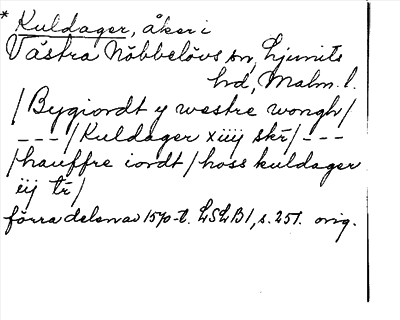 * Kuldager, åker i
Västra Nöbbelövs sn, Ljunits
hd, Malm. l.
/Bygiordt y westre wongh/
---/Kuldager xiiij skr/---
/hauffre iordt/hoss kuldager
iij tr/
förra delen av 1570-t. LSLB1, s. 251. orig.